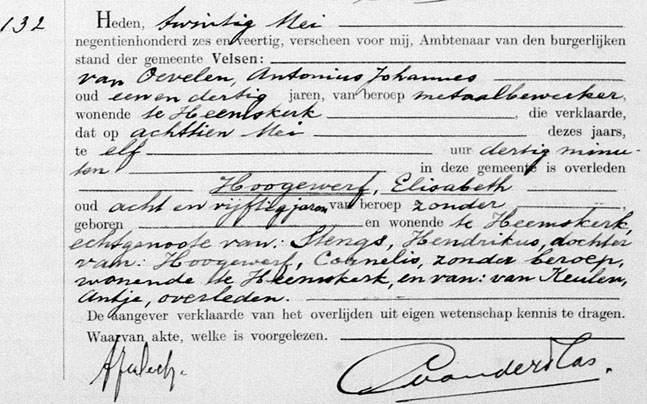 132
Heden, twintig Mei
negentienhonderd zes en veertig, verscheen voor mij, Ambtenaar van den burgerlijken
stand der gemeente Velsen:
van Oevelen, Antonius Johannes
oud een en dertig jaren, van beroep metaalbewerker,
wonende te Heemskerk, die verklaarde,
dat op achttien Mei dezes jaars,
te elf uur dertig minu-
ten in deze gemeente is overleden
Hoogewerf, Elisabeth
oud acht en vijftig jaren van beroep zonder,
geboren en wonende te Heemskerk,
echtgenoote van: Stengs, Hendrikus, dochter
van: Hoogewerf, Cornelis, zonder beroep,
wonende te Heemskerk, en van: van Keulen,
Antje, overleden.
De aangever verklaarde van het overlijden uit eigen wetenschap kennis te dragen.
Waarvan akte, welke is voorgelezen.